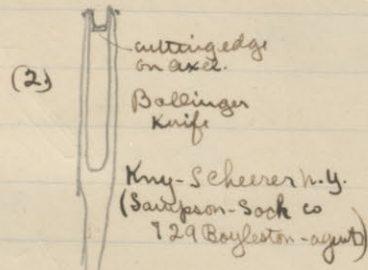 cutting edge
on axel.
(2)
Ballinger
Knife
Kny-Scheerer N.Y.
(Sampson-Soch co
729 Boyleston-agent)